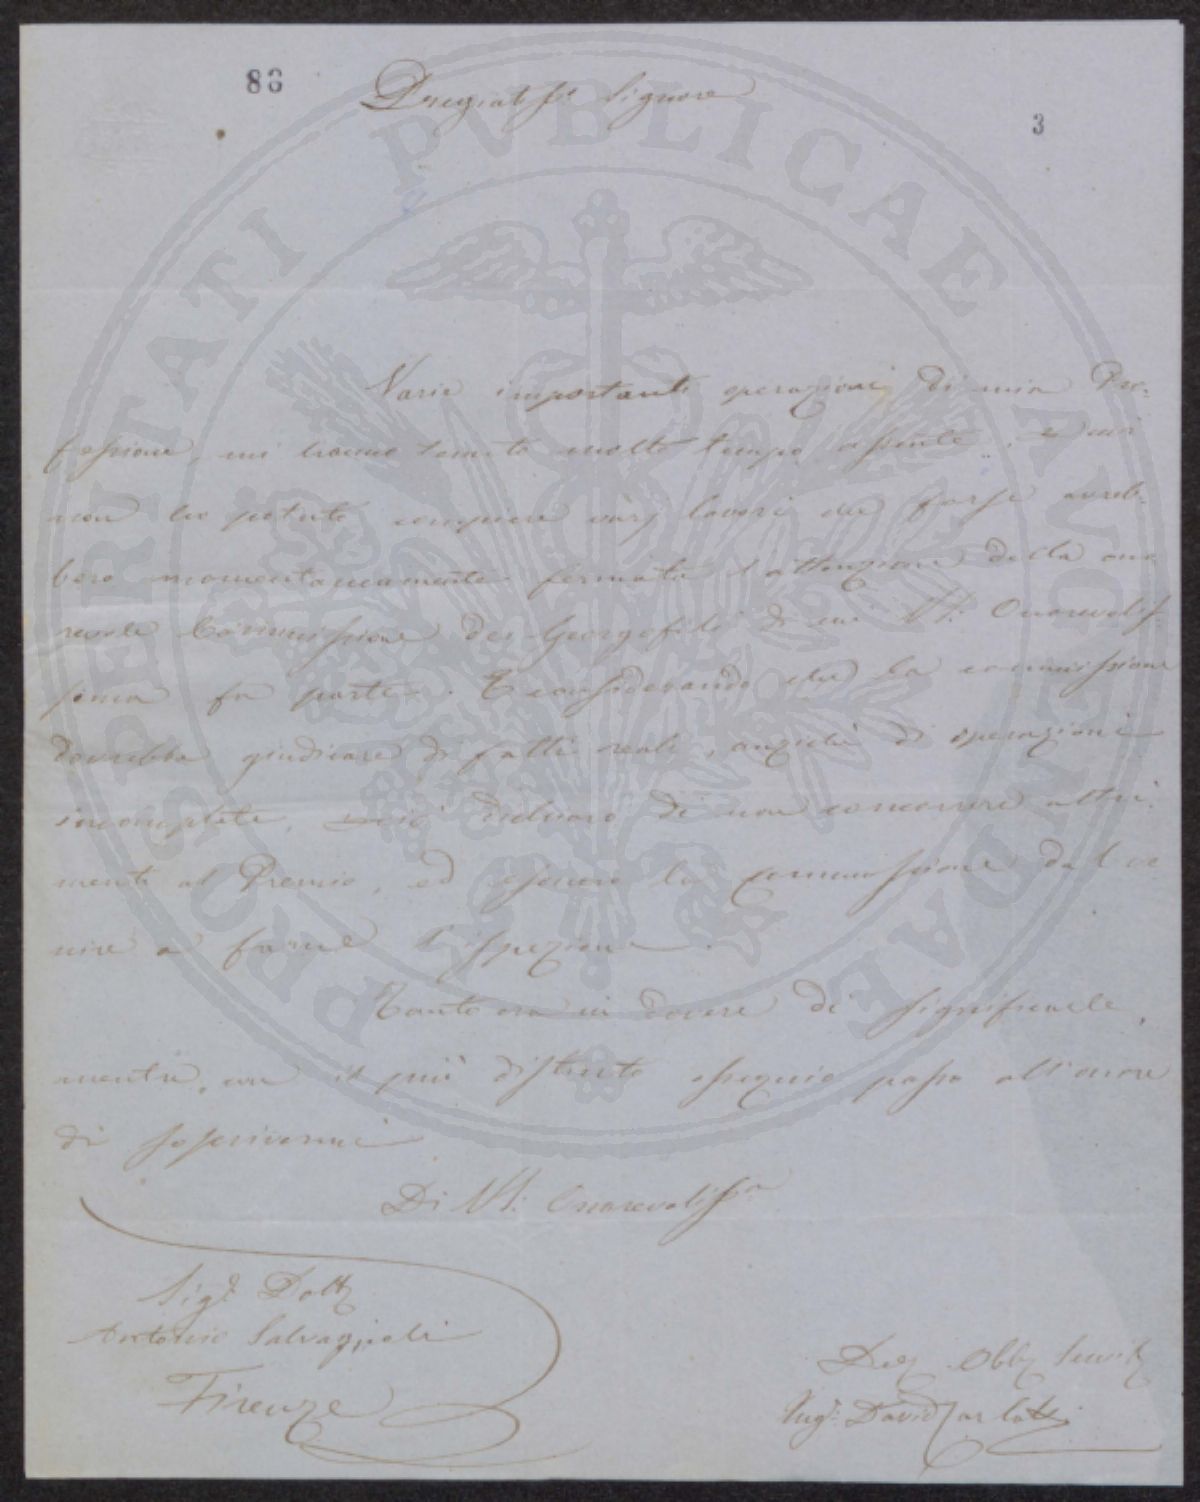 86
3
Pregiat.mo Signore
Varie importanti operazioni di mia Pro-
fessione, mi hanno tenuto molto tempo assente, e
non ho potuto compiere varj lavori che forse avreb-
bero momentaneamente fermata l'attenzione della ono
revole Commissione dei Georgofili di cui V.S. Onorevolis-
sima fa parte. E considerando che la commissione
dovrebbe giudicare di fatti reali, anziché di operazioni
incomplete, dichiaro di non concorrere altri-
menti al Premio, ed esonero la commissione dal ve
nire a farne l'ispezione.
Tanto era in dovere di significarle,
mentre con il più distinto ossequio passo all'onore
di soscrivermi
Di V.S. Onorevoliss.a
Sig.r Dott.
Antonio Salvagnoli
Firenze
Dev. Obb. Servit.
Ing.r David
PROSPERITATI PVBLICAE AVGENDAE